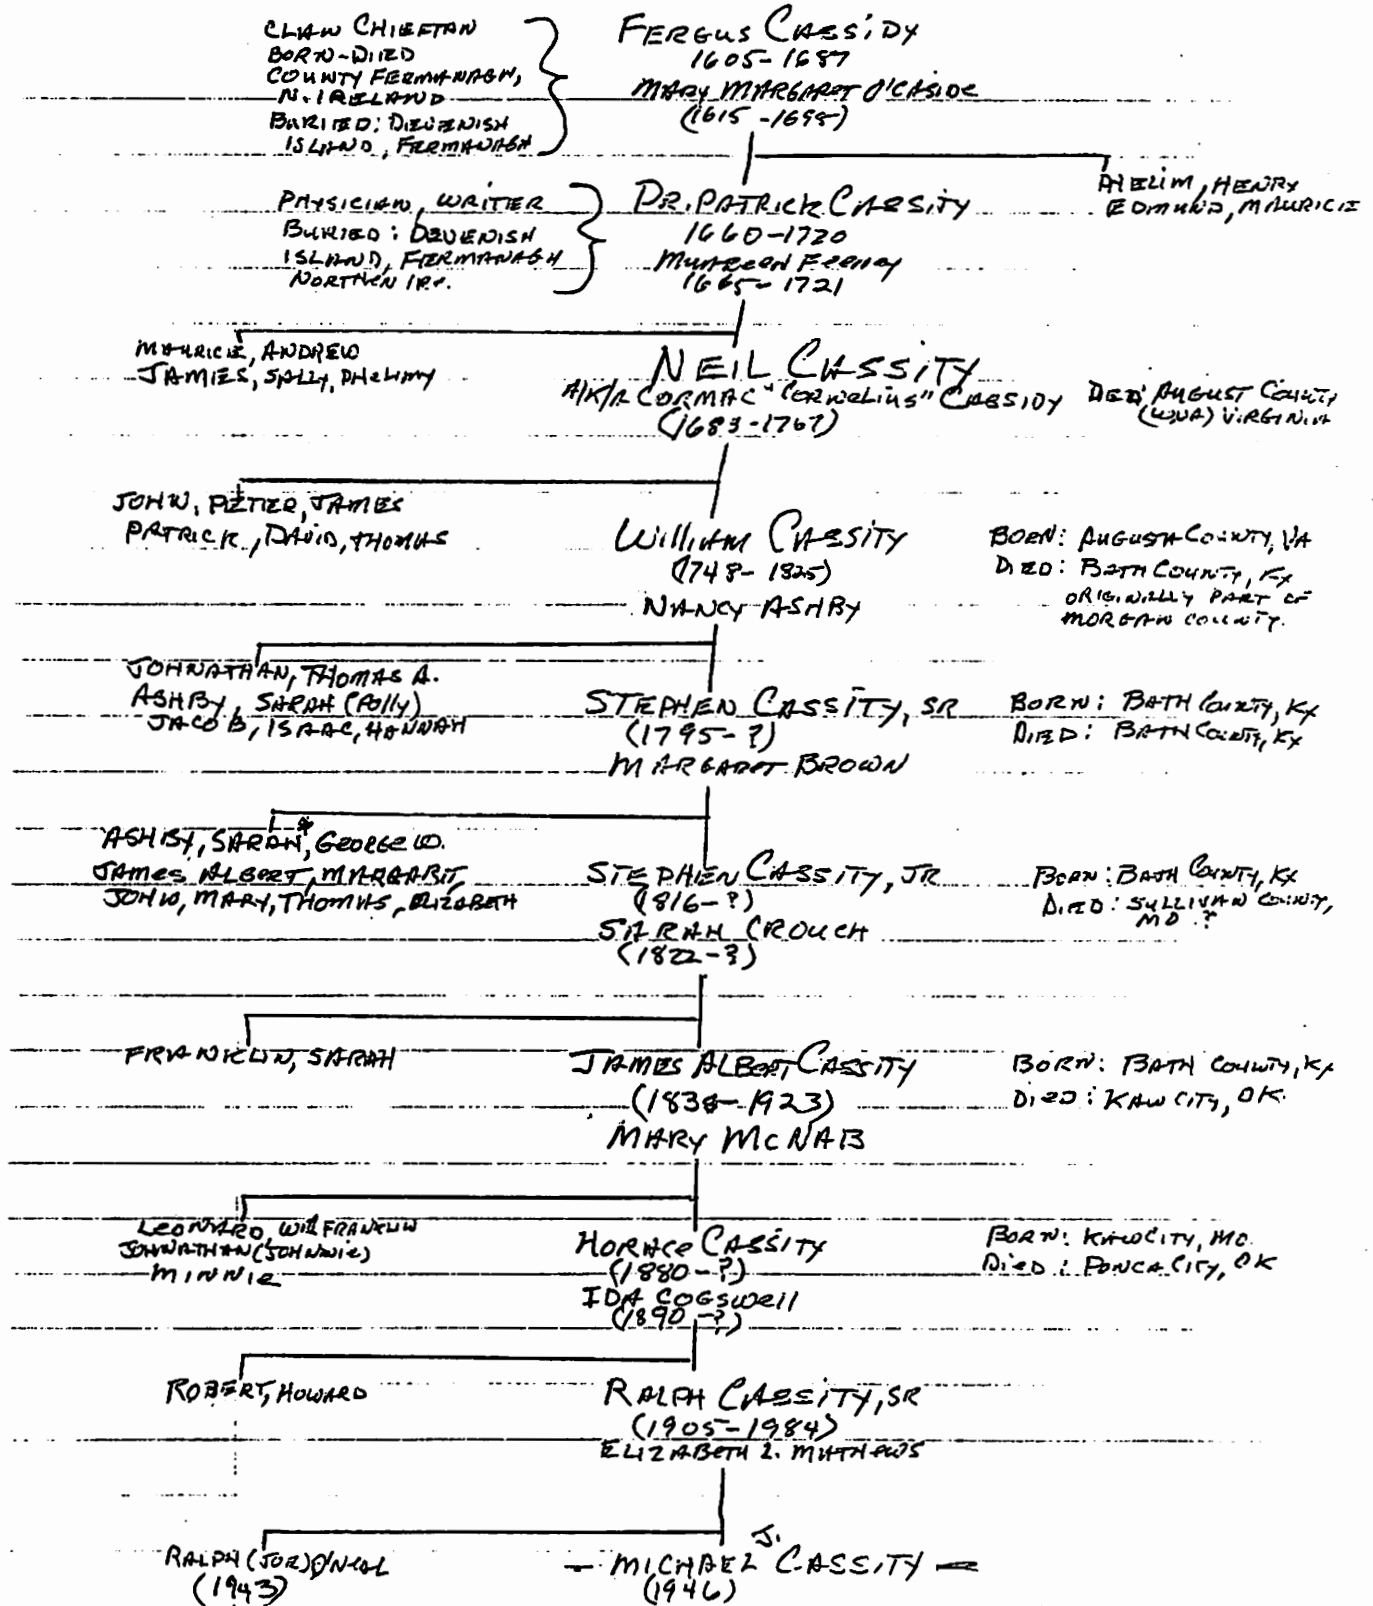 CLAN CHIEFTAN
BORN-DIED
COUNTY FERMANAGH,
N. IRELAND
BURIED: DEVENISH
ISLAND, FERMANAGH
FERGUS CASSIDY
1605-1687
MARY MARGARET O'CASIDE
(1615-1695)
HENRY
EDMUND, MAURICE
PHYSICIAN, WRITER
BURIED: DEVENISH
ISLAND, FERMANAGH
NORTHEN IRE.
DR. PATRICK CASSITY
1660-1720
MUAREEN FEENEY
1665-1721
MAURICE, ANDREW
JAMES, SALLY, PHELIMY
NEIL CASSITY
A/K/A CORMAC "CORNELIUS" CASSIDY
(1683-1767)
DIED: AUGUST COUNTY
VIRGINIA
JOHN, PETER, JAMES
PATRICK, DAVID, THOMAS
WILLIAM CASSITY
(1748-1825)
NANCY ASHBY
BORN: AUGUSTA COUNTY, VA
DIED: BATH COUNTY, KY
ORIGINALLY PART OF
MORGAN COUNTY.
JOHNATHAN, THOMAS A.
ASHBY, SARAH (POLLY)
JACOB, ISAAC, HANNAH
STEPHEN CASSITY, SR
(1795-?)
MARGARET BROWN
BORN: BATH COUNTY, KY
DIED: BATH COUNTY, KY
ASHBY, SARAH*, GEORGE W.
JAMES ALBERT, MARGARIT,
JOHN, MARY, THOMAS, ELIZABETH
STEPHEN CASSITY, JR
(1816-?)
SARAH CROUCH
(1822-?)
BORN: BATH COUNTY, KY
DIED: SULLIVAN COUNTY,
MO ?
FRANKLIN, SARAH
JAMES ALBERT CASSITY
(1838-1923)
MARY MCNAB
BORN: BATH COUNTY, KY
DIED: KAW CITY, OK.
LEONARD, WILL FRANKLIN
JOHNATHAN (JOHNNIE)
MINNIE
HORACE CASSITY
(1880-?)
IDA COGSWELL
(1890-?)
BORN: KAW CITY, MO.
DIED: PONCA CITY, OK
ROBERT, HOWARD
RALPH CASSITY, SR
(1905-1984)
ELIZABETH L. MATHEWS
RALPH (JOE) O'NEAL
(1943)
- MICHAEL J. CASSITY -
(1946)